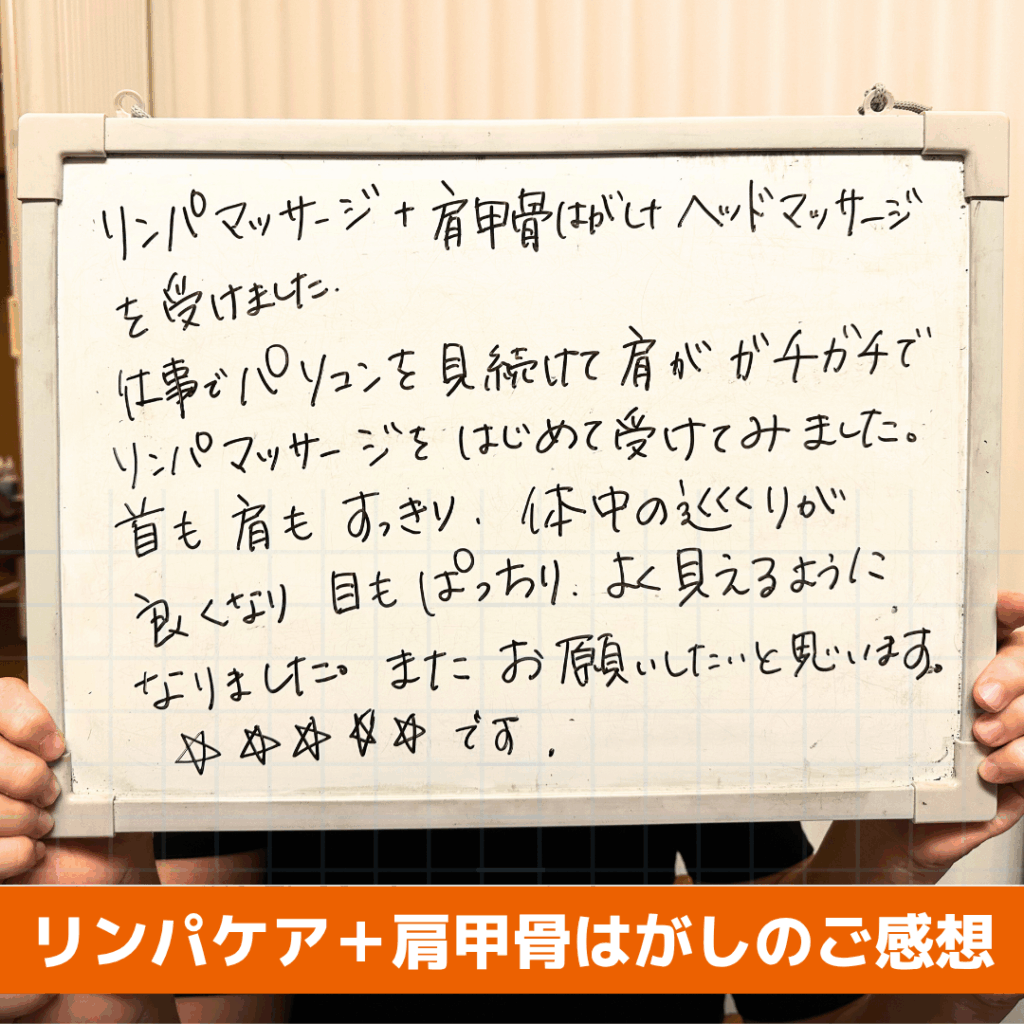 リンパマッサージ+肩甲骨はがし+ヘッドマッサージ
を受けました.
仕事でパソコンを見続けて肩がガチガチで
リンパマッサージをはじめて受けてみました。
首も肩もすっきり.体中の巡りが
良くなり目もぱっちり.よく見えるように
なりました。またお願いしたいと思います。
☆☆☆☆☆です.
リンパケア+肩甲骨はがしのご感想